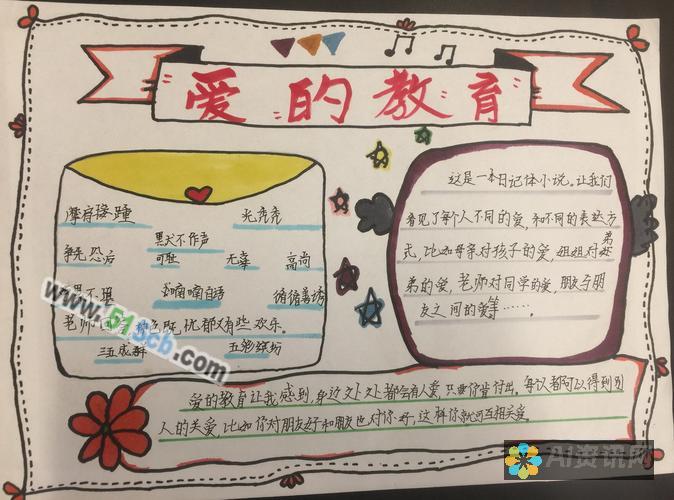 爱的教育
摩肩接踵 光秃秃
争先恐后 默不作声 可耻 无辜 高尚
喃喃自语 循循善诱
老师 忧郁又有些欢乐。
三五成群 五彩缤纷
这是一本日记体小说。让我们
看见了每个人不同的爱,和不同的表达方
式,比如母亲对孩子的爱,姐姐对弟
弟的爱,老师对同学的爱,朋友与朋
友之间的爱等……。
爱的教育让我感到,身边处处都会有人爱,只要你肯付出。每次都可以得到别
人的关爱,比如你对朋友好和朋友也对你好,这样你就可互相关爱。
www.51scb.com
AI资讯网